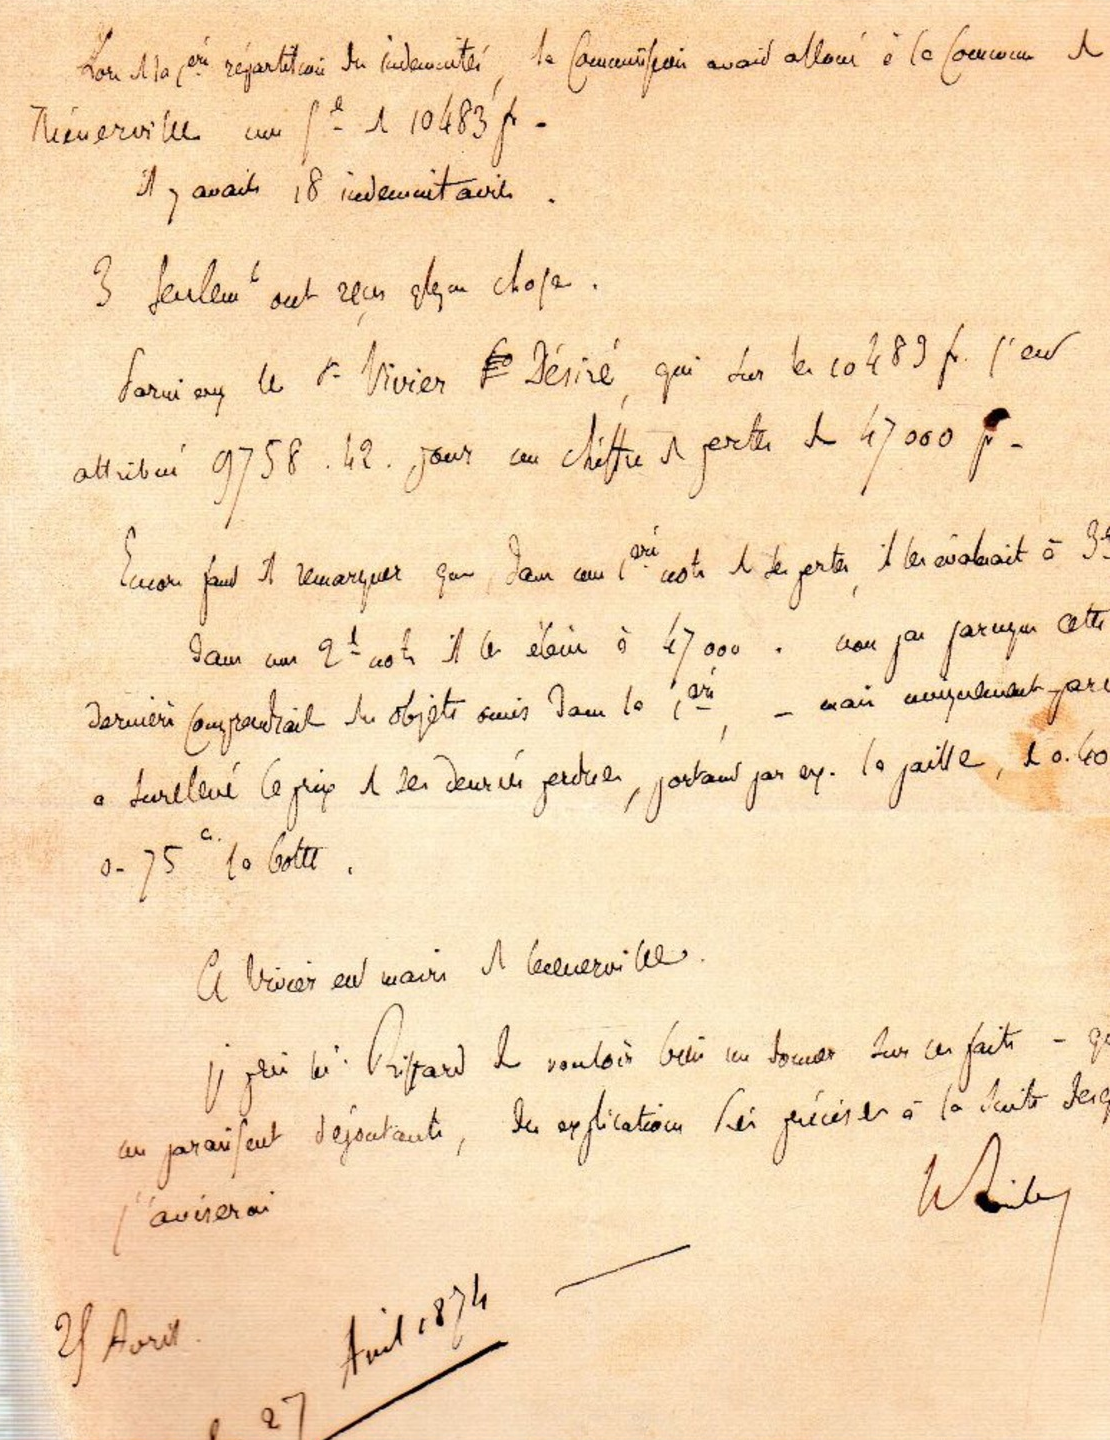 Lors de la 1ère répartition des indemnités, la Commission avait alloué à la Commune de
Thiénerville une 10483 fr -
il y avait 18 indemnitaires.
3 seulemt ont reçu qlque chose.
Parmi eux le Sr Vivier Désiré, qui sur les 10483 fr. s'est
attribué 9758.42. pour un chiffre de pertes de 47000 fr -
Encore faut il remarquer que, dans une 1ère note de ses pertes, il les évaluait à
dans une 2de note il les élève à 47000. non pas parceque cette
dernière comprendrait des objets omis dans la 1ère, - mais uniquement parce
a surelevé le prix de ses denrées perdues, portant par ex. la paille, de 0.40
0-75 c. la botte.
Ce Vivier est maire de
je prie Mr. de vouloir bien me donner sur ces faits -
me paraissent, des explications très précises à la suite
j'aviserai
25 Avril.
27 Avril 1874